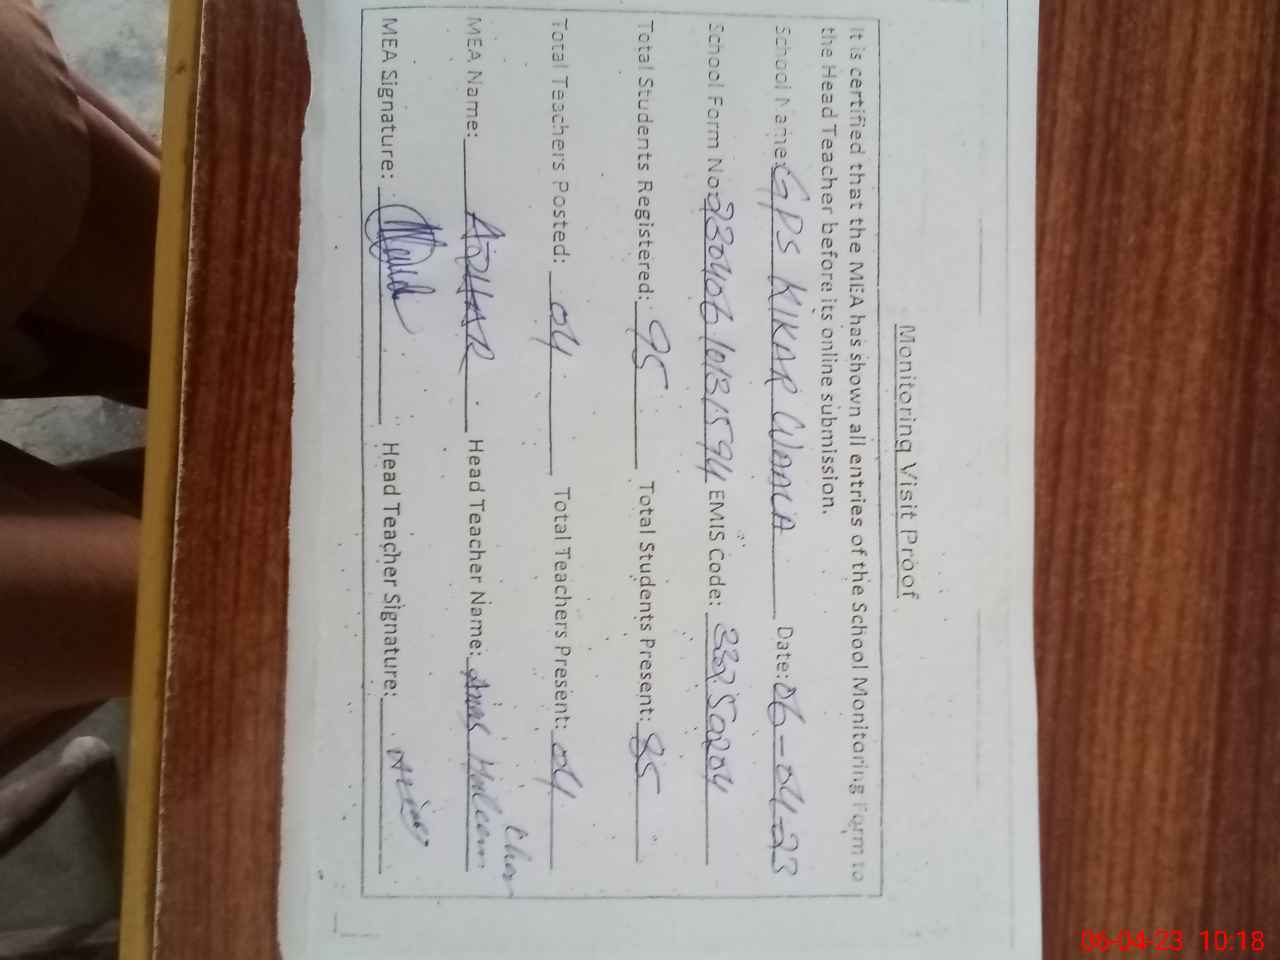 Monitoring Visit Proof
It is certified that the MEA has shown all entries of the School Monitoring Form to
the Head Teacher before its online submission.
School Name: GPS KIKAR WALA Date: 06-04-23
School Form No. EMIS Code: 33250204
Total Students Registered: 95 Total Students Present: 85
Total Teachers Posted: 04 Total Teachers Present: 04
MEA Name: AZHAR Head Teacher Name: Anas
MEA Signature: Head Teacher Signature:
06-04-23 10:18